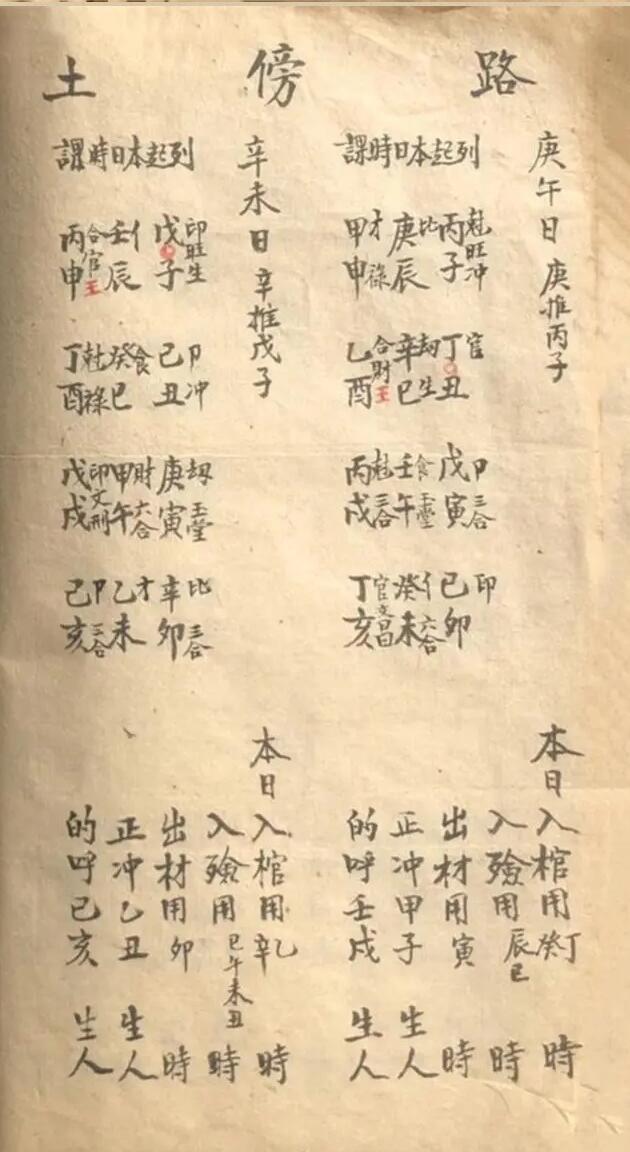 路傍土
庚午日 庚推丙子
列起本日時課
丙子 尅旺冲
丁丑 官
戊寅 卩三合
己卯 印
庚辰 比
辛巳 劫生
壬午 食玉堂
癸未 亻六合
甲申 才祿
乙酉 合財王
丙戌 尅三合
丁亥 官文昌
本日入棺用丁癸時
入殮用辰巳時
出材用寅時
正冲甲子生人
的呼壬戌生人
辛未日 辛推戊子
列起本日時課
戊子 印旺生
己丑 卩冲
庚寅 劫玉堂
辛卯 比三合
壬辰 亻
癸巳 食
甲午 財六合
乙未 才
丙申 合官王
丁酉 尅祿
戊戌 印文刑
己亥 卩三合
本日入棺用乙辛時
入殮用巳午未丑時
出材用卯時
正冲乙丑生人
的呼已亥生人